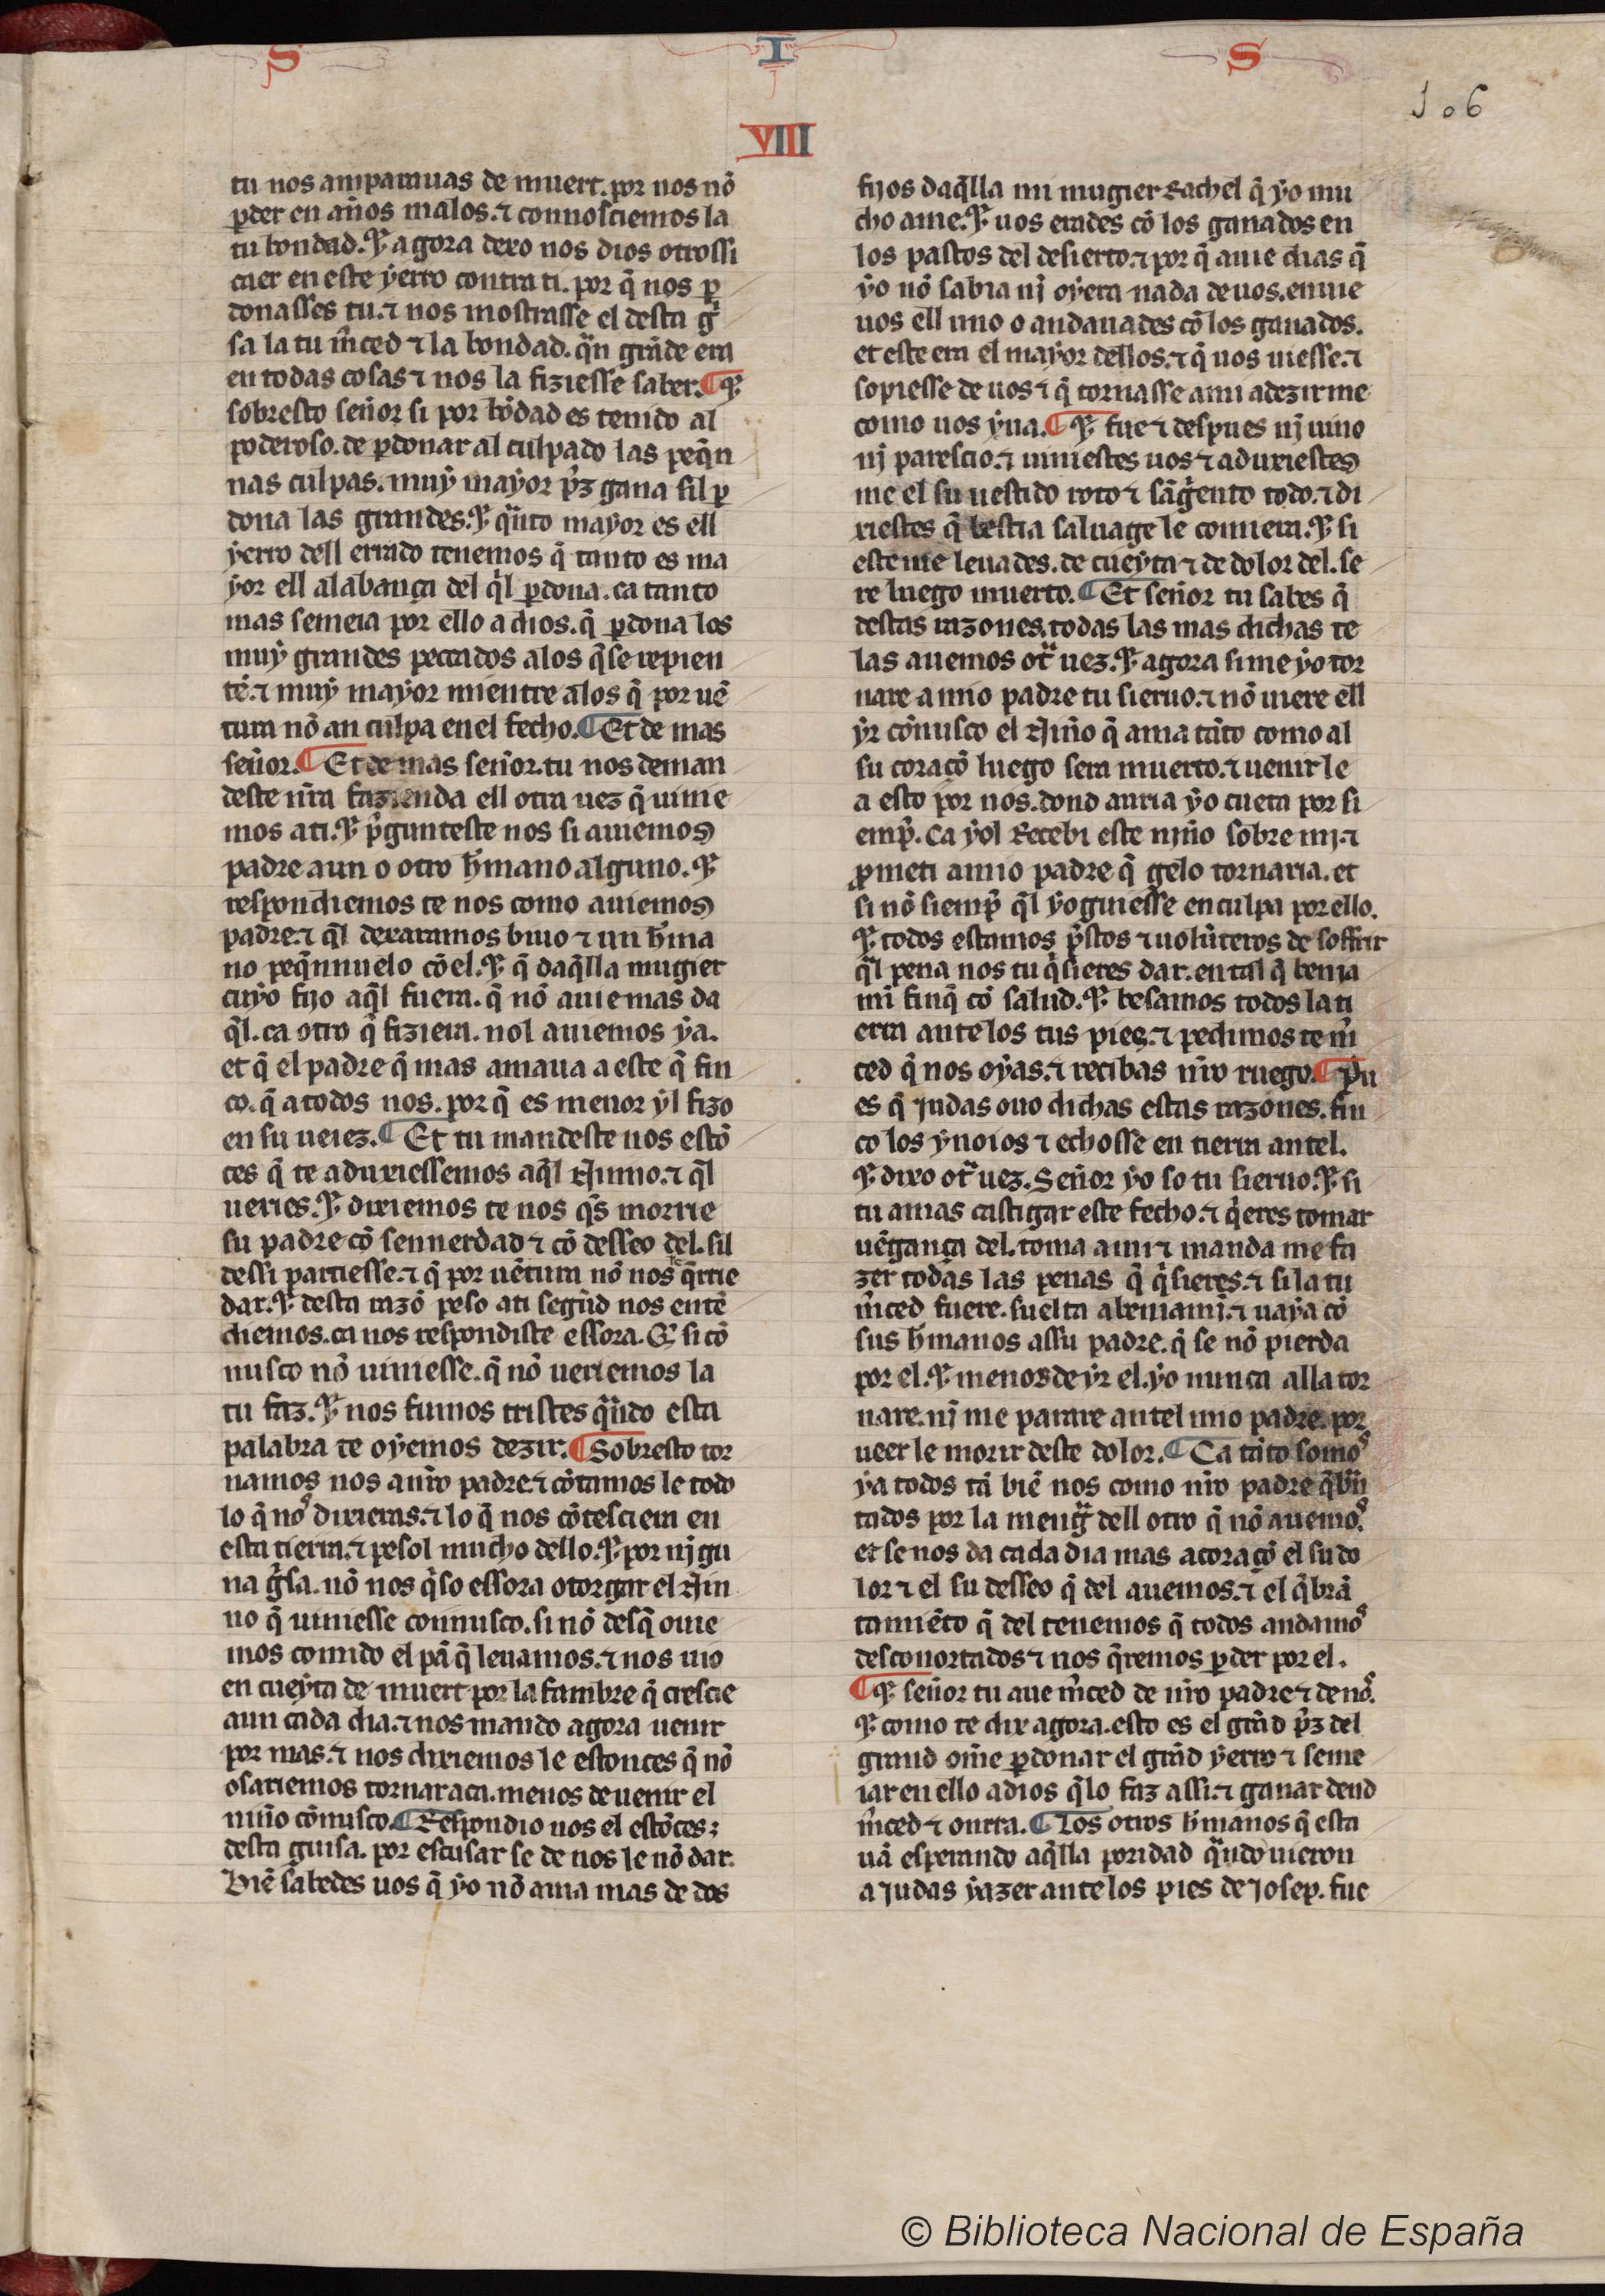 S I S
106
VIII
tu nos amparauas de muert. por nos nõ
ꝑder en años malos. ⁊ connosciemos la
tu bondad. ⁊ agora dexo nos dios otrossi
caer en este ẏerro contra ti. por q̃ nos ꝑ
donasses tu. ⁊ nos mostrasse el desta gͥ
sa la tu m̃ced ⁊ la bondad. qͣn grãde era
en todas cosas ⁊ nos la fiziesse saber. ¶ ⁊
sobresto señor si por bõdad es tenido al
poderoso. de ꝑdonar al culpado las peq̃n
nas culpas. muẏ mayor p̃z gana sil ꝑ
dona las grandes. ⁊ qͣnto mayor es ell
ẏerro dell errado tenemos q̃ tanto es ma
yor ell alabança del qͥl ꝑdona. ca tanto
mas semeia por ello a dios. q̃ ꝑdona los
muẏ grandes peccados alos q̃ se repien
tẽ. ⁊ muẏ mayor mientre alos q̃ por uẽ
tura nõ an culpa en el fecho. ¶ Et de mas
señor. ¶ Et de mas señor. tu nos deman
deste nr̃a fazienda ell otra uez q̃ uinie
mos ati. ⁊ p̃gunteste nos si auiemos
padre aun o otro h̃mano alguno. ⁊
respondiemos te nos como auiemos
padre. ⁊ q̃l dexaramos biuo ⁊ un h̃ma
no peq̃nnuelo cõel. ⁊ q̃ daq̃lla mugier
cuẏo fijo aq̃l fuera. q̃ nõ auie mas da
q̃l. ca otro q̃ fiziera. nol auiemos ẏa.
et q̃ el padre q̃ mas amaua a este q̃ fin
co. q̃ a todos nos. por q̃ es menor ẏl fizo
en su ueiez. ¶ Et tu mandeste nos estõ
ces q̃ te aduxiessemos aq̃l Ninno. ⁊ q̃l
ueries. ⁊ dixiemos te nos q̃s morrie
su padre cõ sennerdad ⁊ cõ desseo del. sil
dessi partiesse. ⁊ q̃ por uẽtura nõ nos le q̃rrie
dar. ⁊ desta razõ peso ati segũd nos entẽ
diemos. ca nos respondiste essora. Q̃ si cõ
nusco nõ uiniesse. q̃ nõ ueriemos la
tu faz. ⁊ nos fumos tristes qͣndo esta
palabra te oẏemos dezir. ¶ Sobresto tor
namos nos anr̃o padre. ⁊ cõtamos le todo
lo q̃ noˢ dixieras. ⁊ lo q̃ nos cõtesciera en
esta tierra. ⁊ pesol mucho dello. ⁊ por nj̃gu
na gͥsa. nõ nos qͥso essora otorgar el Nin
no q̃ uiniesse connusco. si nõ desq̃ ouie
mos comido el pã q̃ leuamos. ⁊ nos uio
en cueẏta de muert por la fambre q̃ crescie
aun cada dia. ⁊ nos mando agora uenir
por mas. ⁊ nos dixiemos le estonces q̃ nõ
osariemos tornar aca. menos de uenir el
niño cõnusco. ¶ Respondio nos el estõces
desta guisa. por escusar se de nos le nõ dar.
Biẽ sabedes uos q̃ ẏo nõ auia mas de dos
fijos daq̃lla mi mugier Rachel q̃ ẏo mu
cho ame. ⁊ uos erades cõ los ganados en
los pastos del desierto. ⁊ por q̃ auie dias q̃
ẏo nõ sabia nj̃ oẏera nada de uos. enuie
uos ell uno o andauades cõ los ganados.
et este era el maẏor dellos. ⁊ q̃ uos uiesse. ⁊
sopiesse de uos ⁊ q̃ tornasse ami adezirme
como uos ẏua. ¶ ⁊ fue ⁊ despues nj̃ uino
nj̃ parescio. ⁊ uiniestes uos ⁊ aduxiestes
me el su uestido roto ⁊ sãgͥento todo. ⁊ di
xiestes q̃ bestia saluage le comiera. ⁊ si
este me leuades. de cueẏta ⁊ de dolor del. se
re luego muerto. ¶ Et señor tu sabes q̃
destas razones. todas las mas dichas te
las auemos otͣ uez. ⁊ agora si me ẏo tor
nare a mio padre tu sieruo. ⁊ nõ uiere ell
ẏr cõnusco el Niño q̃ ama tãto como al
su coraçõ luego sera muerto. ⁊ uenir le
a esto por nos. dond auria ẏo cueta por si
emp̃. Ca ẏol Recebi este niño sobre mj̃. ⁊
ꝓmeti amio padre q̃ gelo tornaria. et
si nõ siemp̃ q̃l ẏoguiesse en culpa por ello.
⁊ todos estamos p̃stos ⁊ uolũteros de soffrir
q̃l pena nos tu qͥsieres dar. en tal q̃ benia
mĩ finq̃ cõ salud. ⁊ besamos todos la ti
erra ante los tus pies. ⁊ pedimos te m̃
ced q̃ nos oẏas. ⁊ recibas nr̃o ruego. ¶ Pu
es q̃ Judas ouo dichas estas razones. fin
co los ẏnoios ⁊ echosse en tierra antel.
⁊ dixo otͣ uez. Señor ẏo so tu sieruo. ⁊ si
tu amas castigar este fecho. ⁊ qͥeres tomar
uẽgança del. toma ami ⁊ manda me fa
zer todas las penas q̃ qͥsieres. ⁊ si la tu
m̃ced fuere. suelta abeniamj̃. ⁊ uaẏa cõ
sus h̃manos assu padre. q̃ se nõ pierda
por el. ⁊ menos de ẏr el. ẏo nunca alla tor
nare. nj̃ me parare antel mio padre. por
ueer le morir deste dolor. ¶ Ca tãto somoˢ
ẏa todos tã biẽ nos como nr̃o padre q̃brã
tados por la mengͣ dell otro q̃ nõ auemoˢ.
et se nos da cada dia mas a coraçõ el su do
lor ⁊ el su desseo q̃ del auemos. ⁊ el q̃brã
tamiẽto q̃ del tenemos q̃ todos andamoˢ
desconortados ⁊ nos q̃remos ꝑder por el.
¶ ⁊ señor tu aue m̃ced de nr̃o padre ⁊ de noˢ.
⁊ como te dix agora. esto es el grãd p̃z del
grand om̃e ꝑdonar el grãd ẏerro ⁊ seme
iar en ello adios q̃ lo faz assi. ⁊ ganar dend
m̃ced ⁊ onrra. ¶ Los otros h̃manos q̃ esta
uã esperando aq̃lla poridad qͣndo uieron
a Judas ẏazer ante los pies de Josep. fue
© Biblioteca Nacional de España